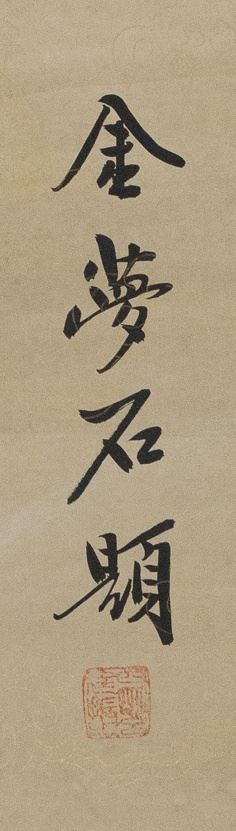 金夢石題